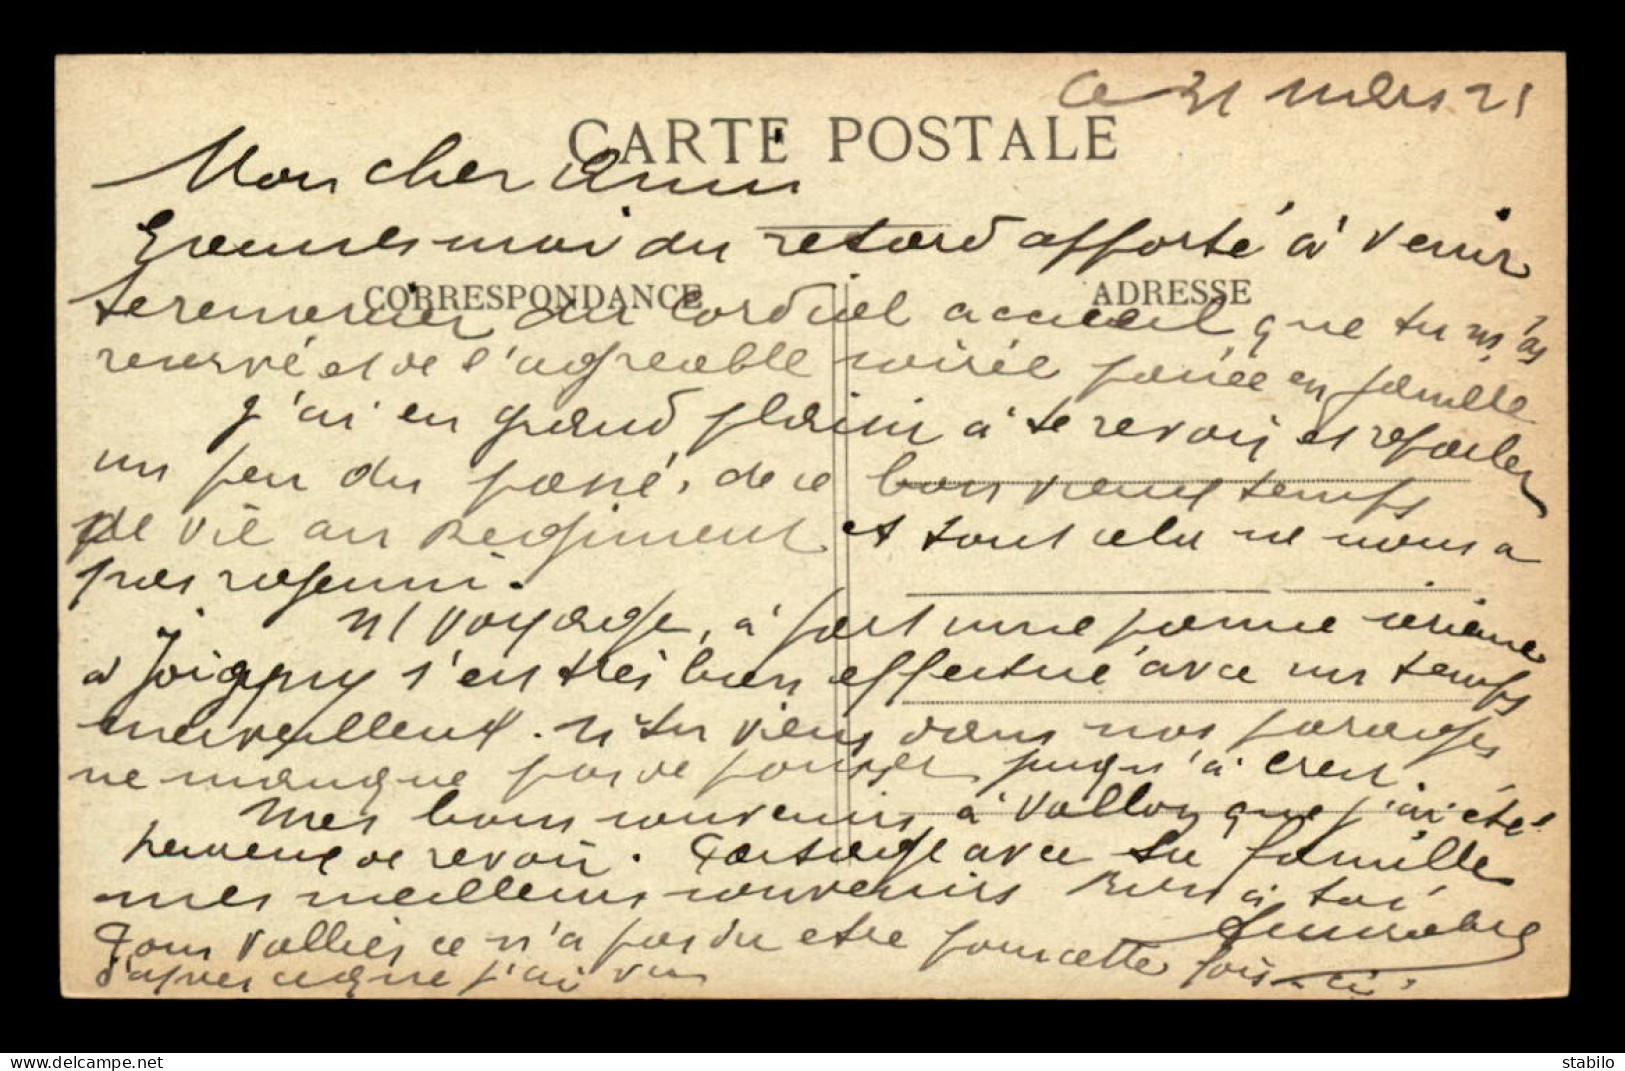 Ce 31 mars 21
CARTE POSTALE
Mon cher Ami
Excuses moi du retard apporté à venir
CORRESPONDANCE
ADRESSE
te remercier du cordial accueil que tu m'as
reservé et de l'agreable soirée passée en famille
J'ai eu grand plaisir à te revoir et reparler
un peu du passé, de ce bon vieux temps
de vie au Regiment et tout cela ne nous a
pas rajeuni.
Le voyage, à part une panne serieuse
a Joigny s'est très bien effectué avec un temps
merveilleux. Si tu viens dans nos parages
ne manque pas de pousser jusqu'à Creil.
Mes bons souvenirs à Vallon que j'ai été
heureux de revoir. Partage avec ta famille
mes meilleurs souvenirs Bien à toi
Pour Vallier ce n'a pas du etre pour cette fois-ci
d'apres ce que j'ai vu
stabilo